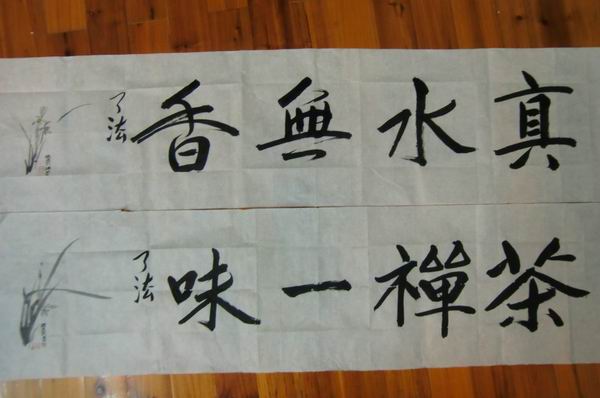 真水無香
了法
茶禪一味
了法